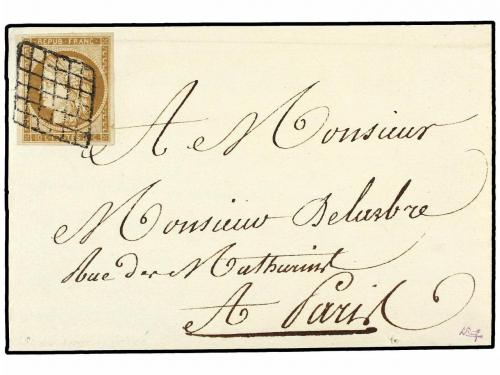 REPUB. FRANC.
A Monsieur
Monsieur Delasbre
Rue des Mathurins
A Paris